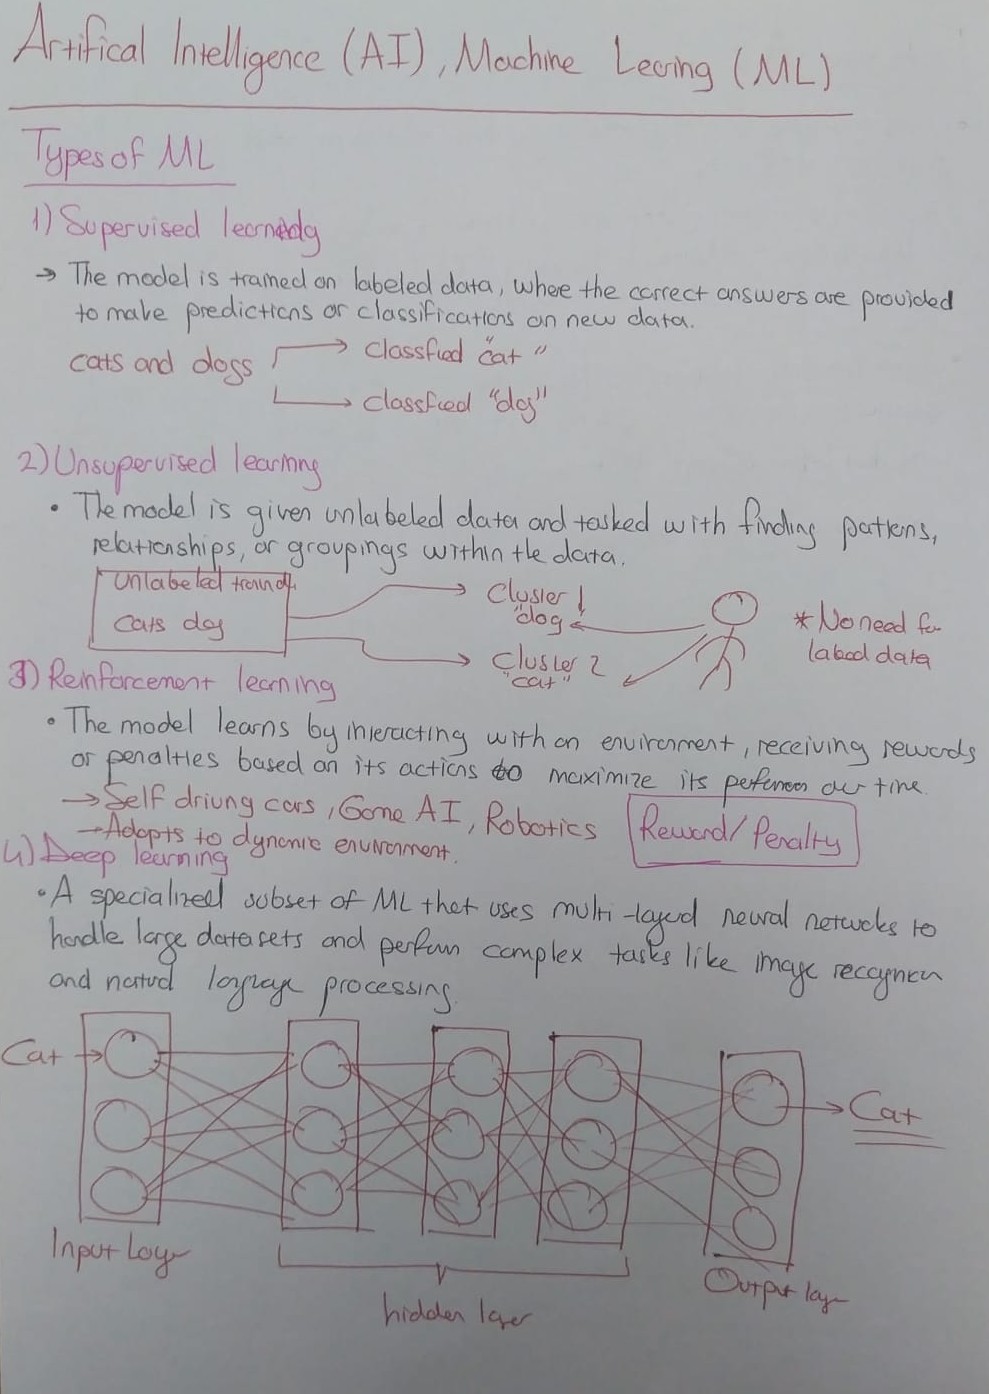 Artifical Intelligence (AI), Machine Learing (ML)
Types of ML
1) Supervised learning
→ The model is trained on labeled data, where the correct answers are provided
to make predictions or classifications on new data.
cats and dogs
classfied "cat"
classfied "dog"
2) Unsupervised learning
• The model is given unlabeled data and tasked with finding patterns,
relationships, or groupings within the data.
unlabeled
cats dog
Cluster 1
"dog"
Cluster 2
"cat"
* No need for
labed data
3) Reinforcement learning
• The model learns by interacting with an environment, receiving rewards
or penalties based on its actions to maximize its over time.
→ Self driving cars, Game AI, Robotics
→ Adapts to dynamic environment.
Reward/Penalty
4) Deep learning
• A specialized subset of ML that uses multi-layed neural networks to
handle large datasets and perform complex tasks like image recognition
and natural language processing.
Cat →
→ Cat
Input layer
hidden layer
Output layer